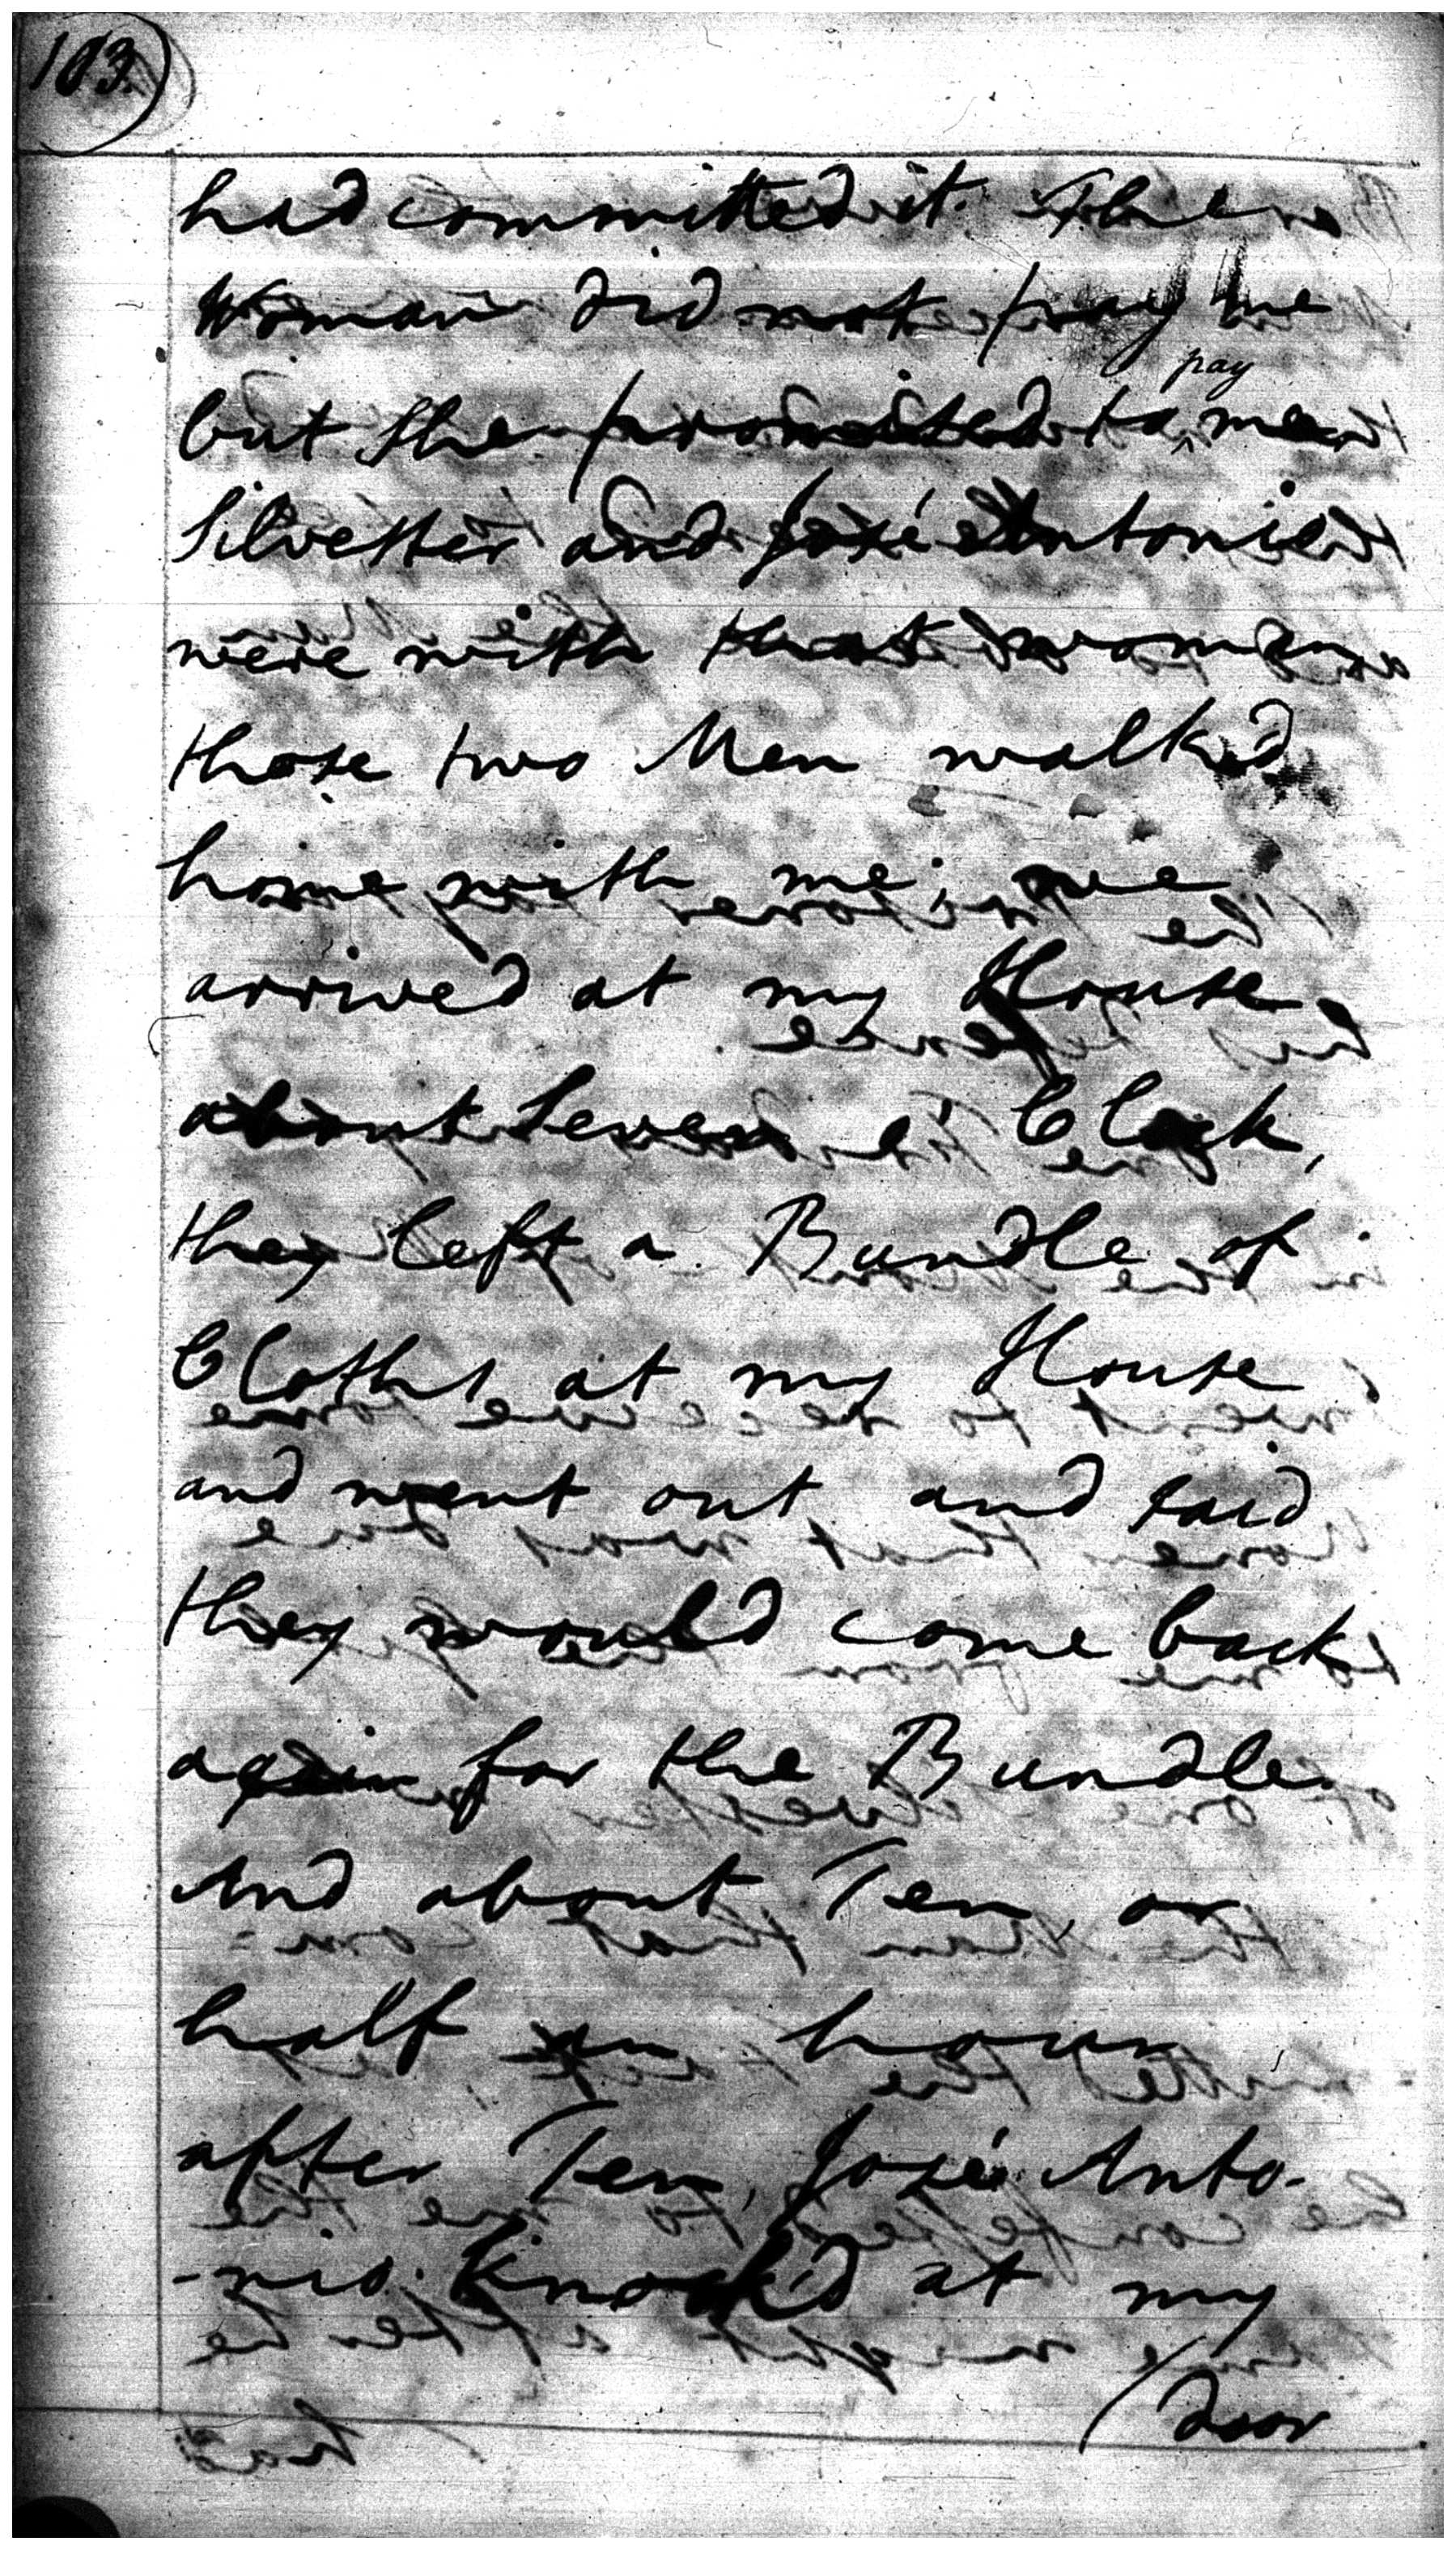 103
had committed it. The
Woman did not pay me
but she promised to pay me
Silvester and José Antonio
were with that woman
those two Men walk'd
home with me; we
arrived at my House
about Seven o' Clock,
they left a Bundle of
Cloths at my House
and went out and said
they would come back
again for the Bundle
And about Ten, or
half an hour
after Ten, José Anto-
-nio knock'd at my
door